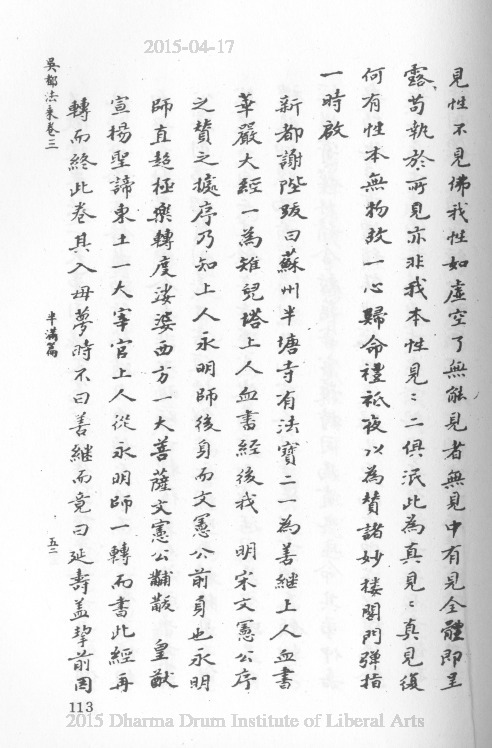 2015-04-17
見性不見佛我性如虛空了無能見者無見中有見全體即呈
露苟執於所見亦非我本性見:二俱泯此為真見:真見復
何有性本無物故一心歸命禮祇夜以為贊諸妙樓閣門彈指
一時啟
新都謝陛跋曰蘇州半塘寺有法寶二一為善繼上人血書
華嚴大經一為雉兒塔上人血書經後我 明宋文憲公序
之贊之據序乃知上人永明師後身而文憲公前身也永明
師直超極樂轉度娑婆西方一大菩薩文憲公黼黻 皇猷
宣揚聖諦東土一大宰官上人從永明師一轉而書此經再
轉而終此卷其入母夢時不曰善繼而竟曰延壽盖挈前因
吳都法乘卷三
半滿篇
五二
113
2015 Dharma Drum Institute of Liberal Arts